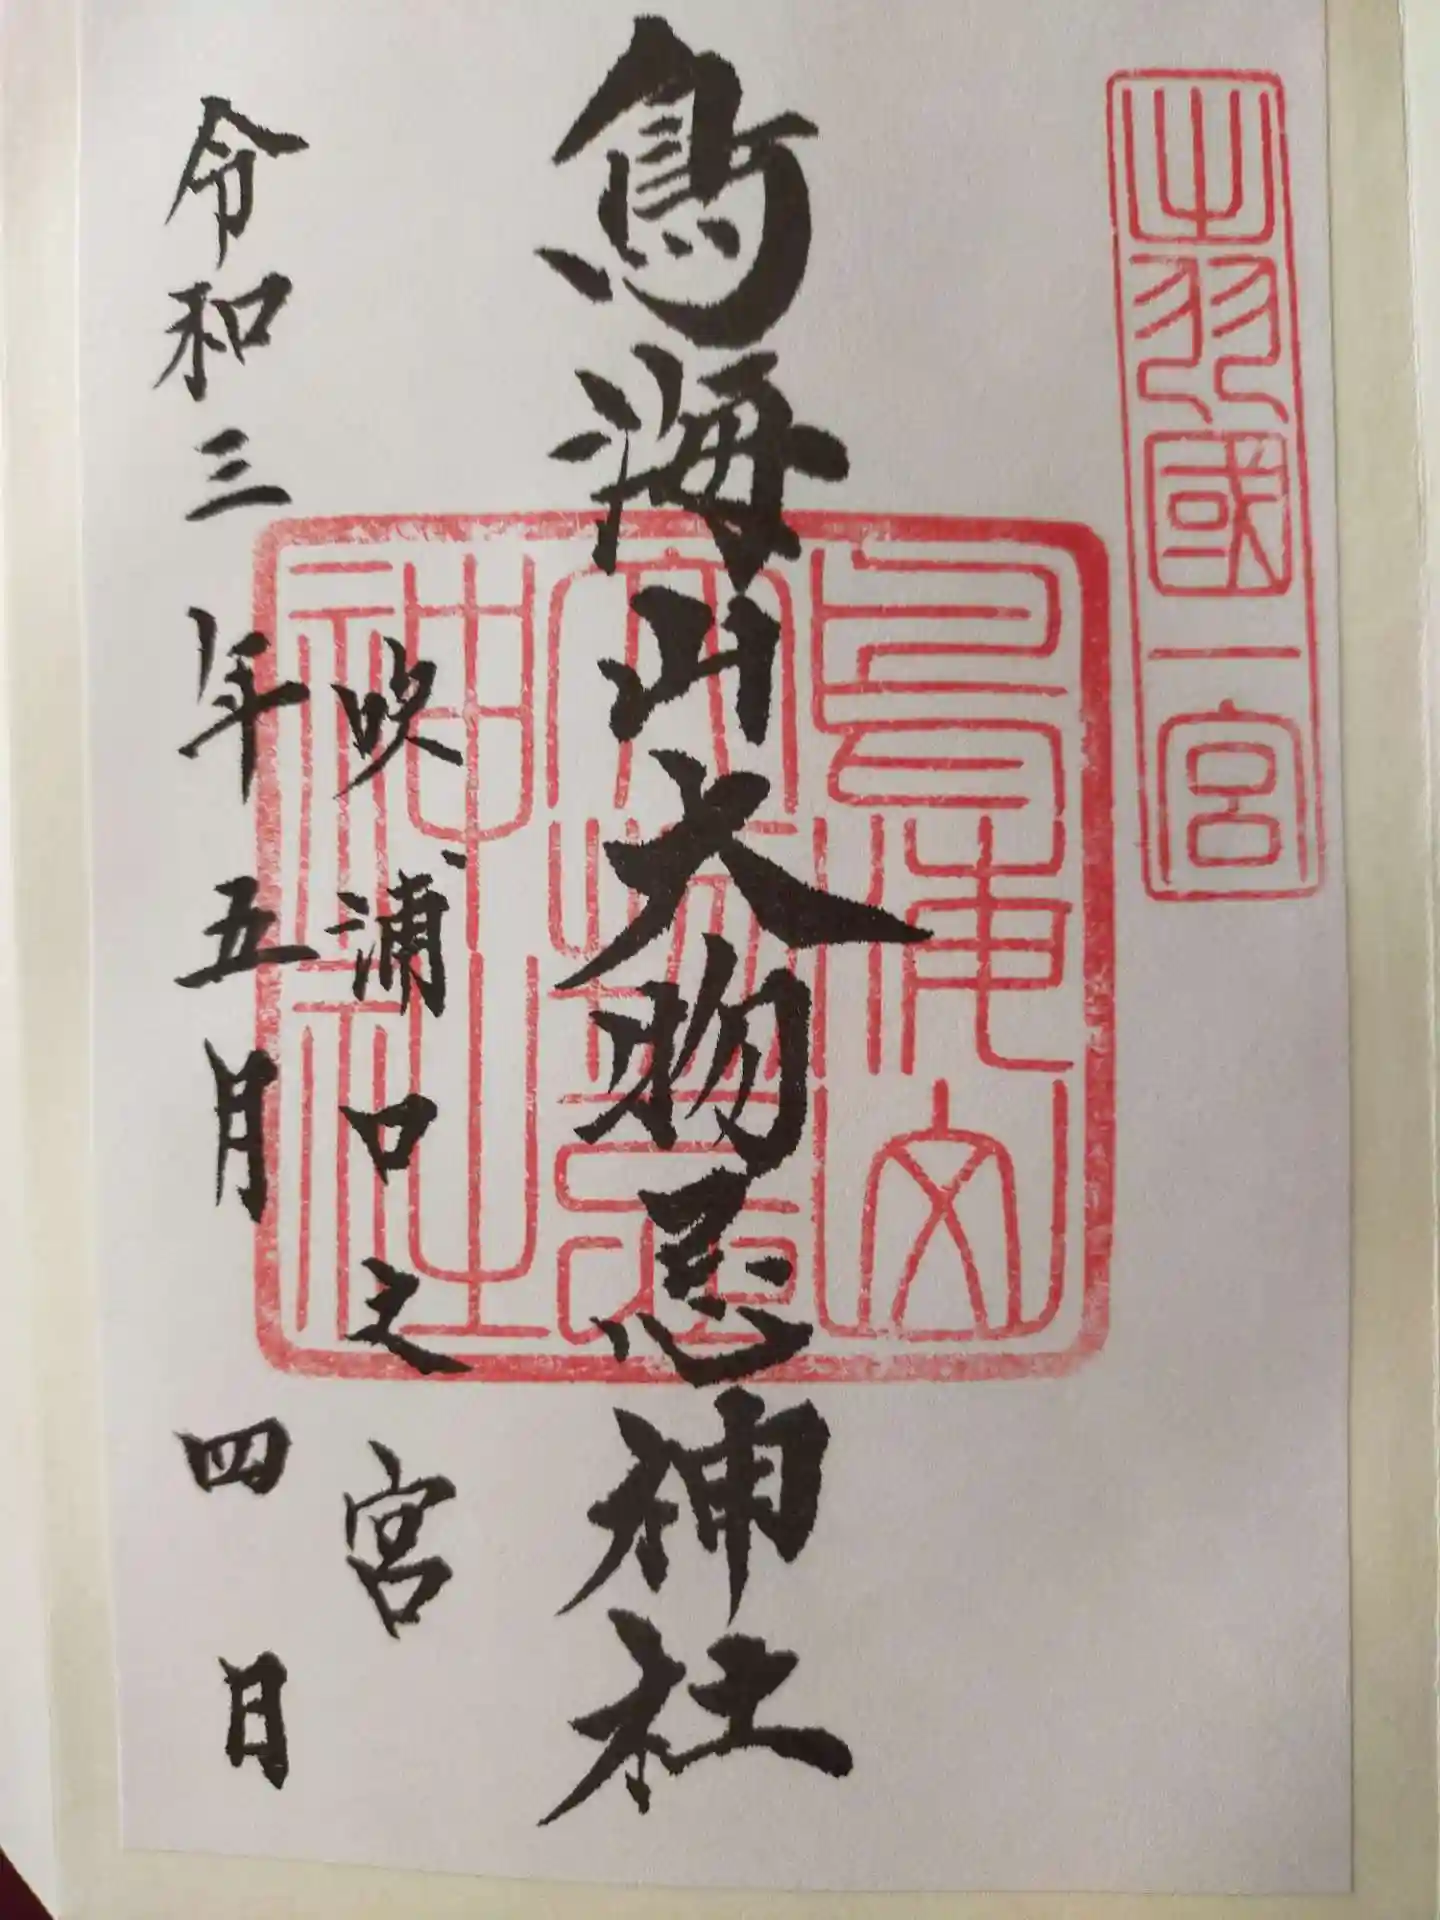 出羽國一宮
鳥海山大物忌神社
鳥海山
大物忌
神社
吹浦口之宮
令和三年五月四日